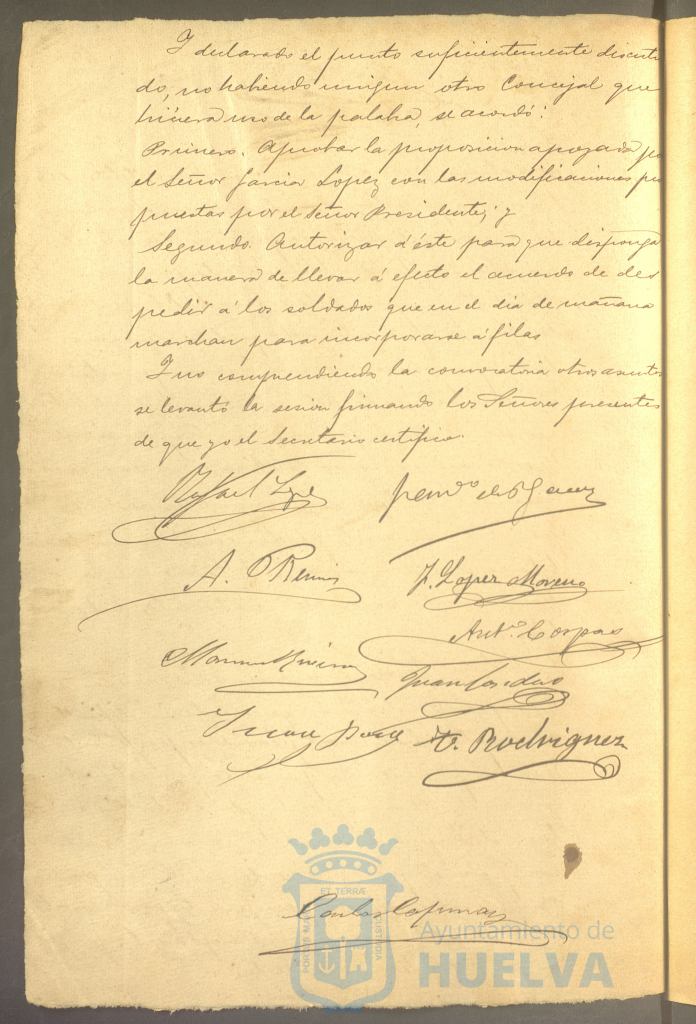 Y declarado el punto suficientemente discuti
do, no habiendo ningun otro Concejal que
hiciera uso de la palabra, se acordó:
Primero. Aprobar la proposicion apoyada po
el Señor Garcia Lopez con las modificaciones pro
puestas por el Señor Presidente; y
Segundo. Autorizar á éste para que disponga
la manera de llevar á efecto el acuerdo de des
pedir á los soldados que en el dia de mañana
marchan para incorporarse á filas
Y no comprendiendo la convocatoria otros asuntos
se levantó la sesion firmando los Señores presentes
de que yo el Secretario certifico.
Rafael
A.
J. Lopez Moreno
Antº. Corpas
Manuel
Juan
Juan
Rodriguez
ET TERRÆ
PORTUS MARIS
CUSTODIA
Carlos
Ayuntamiento de
HUELVA